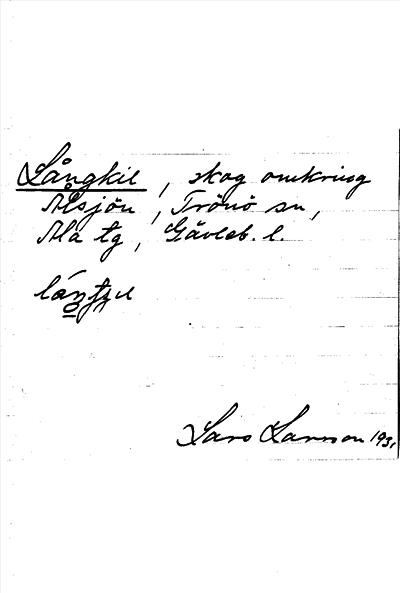 Långkil, skog omkring
Alsjön, Trönö sn,
Ala tg, Gävleb. l.
Lars Larsson 1931